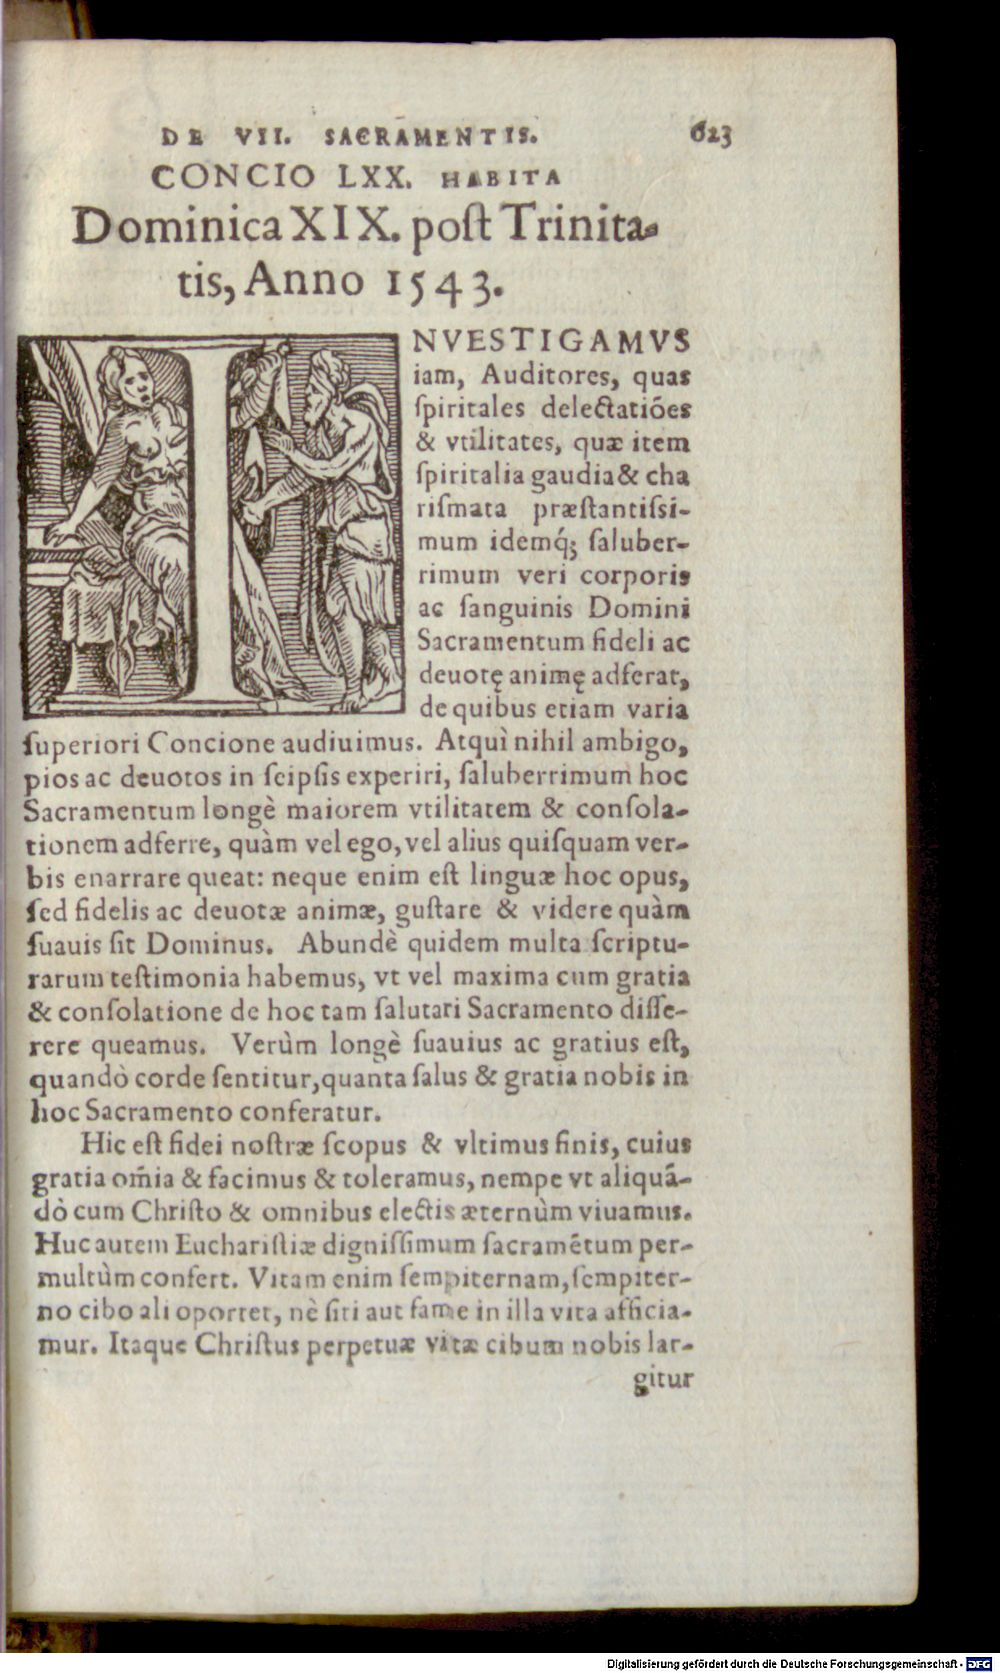 DE VII. SACRAMENTIS. 623
CONCIO LXX. HABITA
Dominica XIX. poſt Trinita-
tis, Anno 1543.
INVESTIGAMVS
iam, Auditores, quas
ſpiritales delectatiões
& vtilitates, quæ item
ſpiritalia gaudia & cha
riſmata præſtantiſsi-
mum idemq́; ſaluber-
rimum veri corporis
ac ſanguinis Domini
Sacramentum fideli ac
deuotę animę adferat,
de quibus etiam varia
ſuperiori Concione audiuimus. Atquì nihil ambigo,
pios ac deuotos in ſeipſis experiri, ſaluberrimum hoc
Sacramentum longè maiorem vtilitatem & conſola-
tionem adferre, quàm vel ego, vel alius quiſquam ver-
bis enarrare queat: neque enim eſt linguæ hoc opus,
ſed fidelis ac deuotæ animæ, guſtare & videre quàm
ſuauis ſit Dominus. Abundè quidem multa ſcriptu-
rarum teſtimonia habemus, vt vel maxima cum gratia
& conſolatione de hoc tam ſalutari Sacramento diſſe-
rere queamus. Verùm longè ſuauius ac gratius eſt,
quandò corde ſentitur, quanta ſalus & gratia nobis in
hoc Sacramento conferatur.
Hic eſt fidei noſtræ ſcopus & vltimus finis, cuius
gratia om̃ia & facimus & toleramus, nempe vt aliquã-
dò cum Chriſto & omnibus electis æternùm viuamus.
Huc autem Euchariſtiæ digniſſimum ſacramẽtum per-
multùm confert. Vitam enim ſempiternam, ſempiter-
no cibo ali oportet, nè ſiti aut fame in illa vita afficia-
mur. Itaque Chriſtus perpetuæ vitæ cibum nobis lar-
gitur
Digitalisierung gefördert durch die Deutsche Forschungsgemeinschaft - DFG